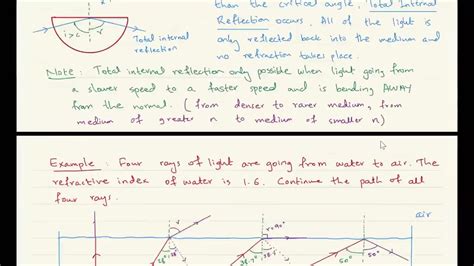 than the critical angle, Total Internal
Reflection occurs. All of the light is
only reflected back into the medium and
no refraction takes place.
i > c
r
Total internal
reflection
Note : Total internal reflection only possible when light going from
a slower speed to a faster speed and is bending AWAY
from the normal. ( from denser to rarer medium, from
medium of greater n to medium of smaller n)
Example : Four rays of light are going from water to air. The
refractive index of water is 1.6. Continue the path of all
four rays.
air
r
r=90°
38.7°
50°
50°